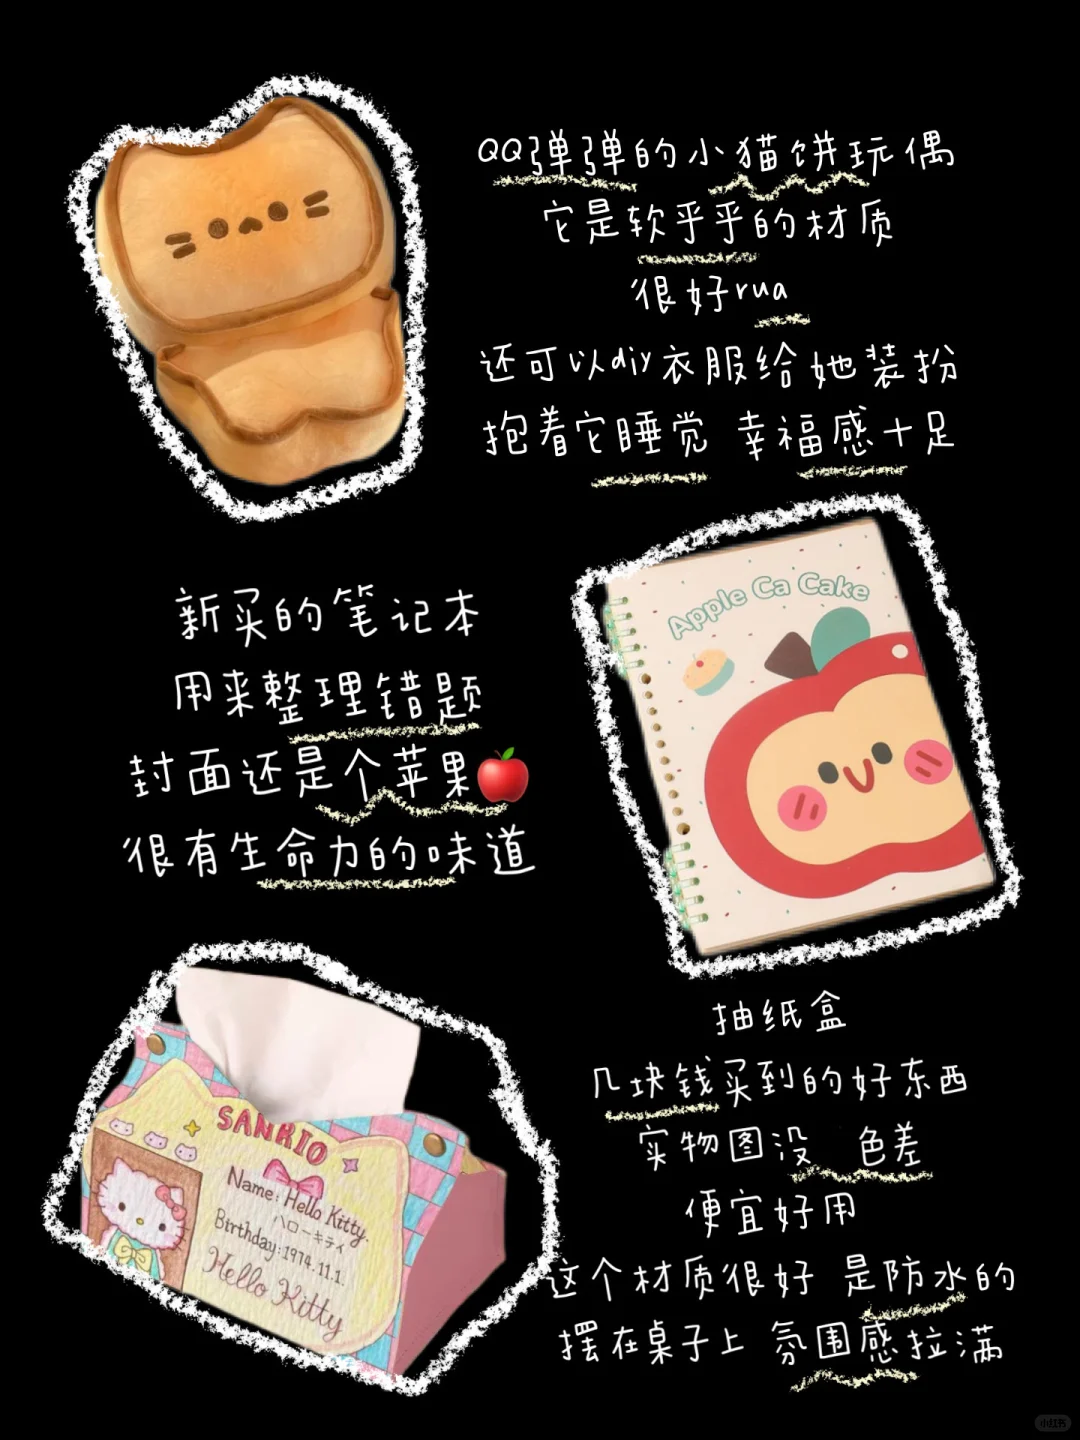 QQ弹弹的小猫饼玩偶
它是软乎乎的材质
很好rua
还可以diy衣服给她装扮
抱着它睡觉 幸福感十足
Apple Ca Cake
新买的笔记本
用来整理错题
封面还是个苹果🍎
很有生命力的味道
抽纸盒
几块钱买到的好东西
实物图没 色差
便宜好用
这个材质很好 是防水的
摆在桌子上 氛围感拉满
SANRIO
Name: Hello Kitty.
ハローキティ
Birthday: 1974.11.1.
Hello Kitty